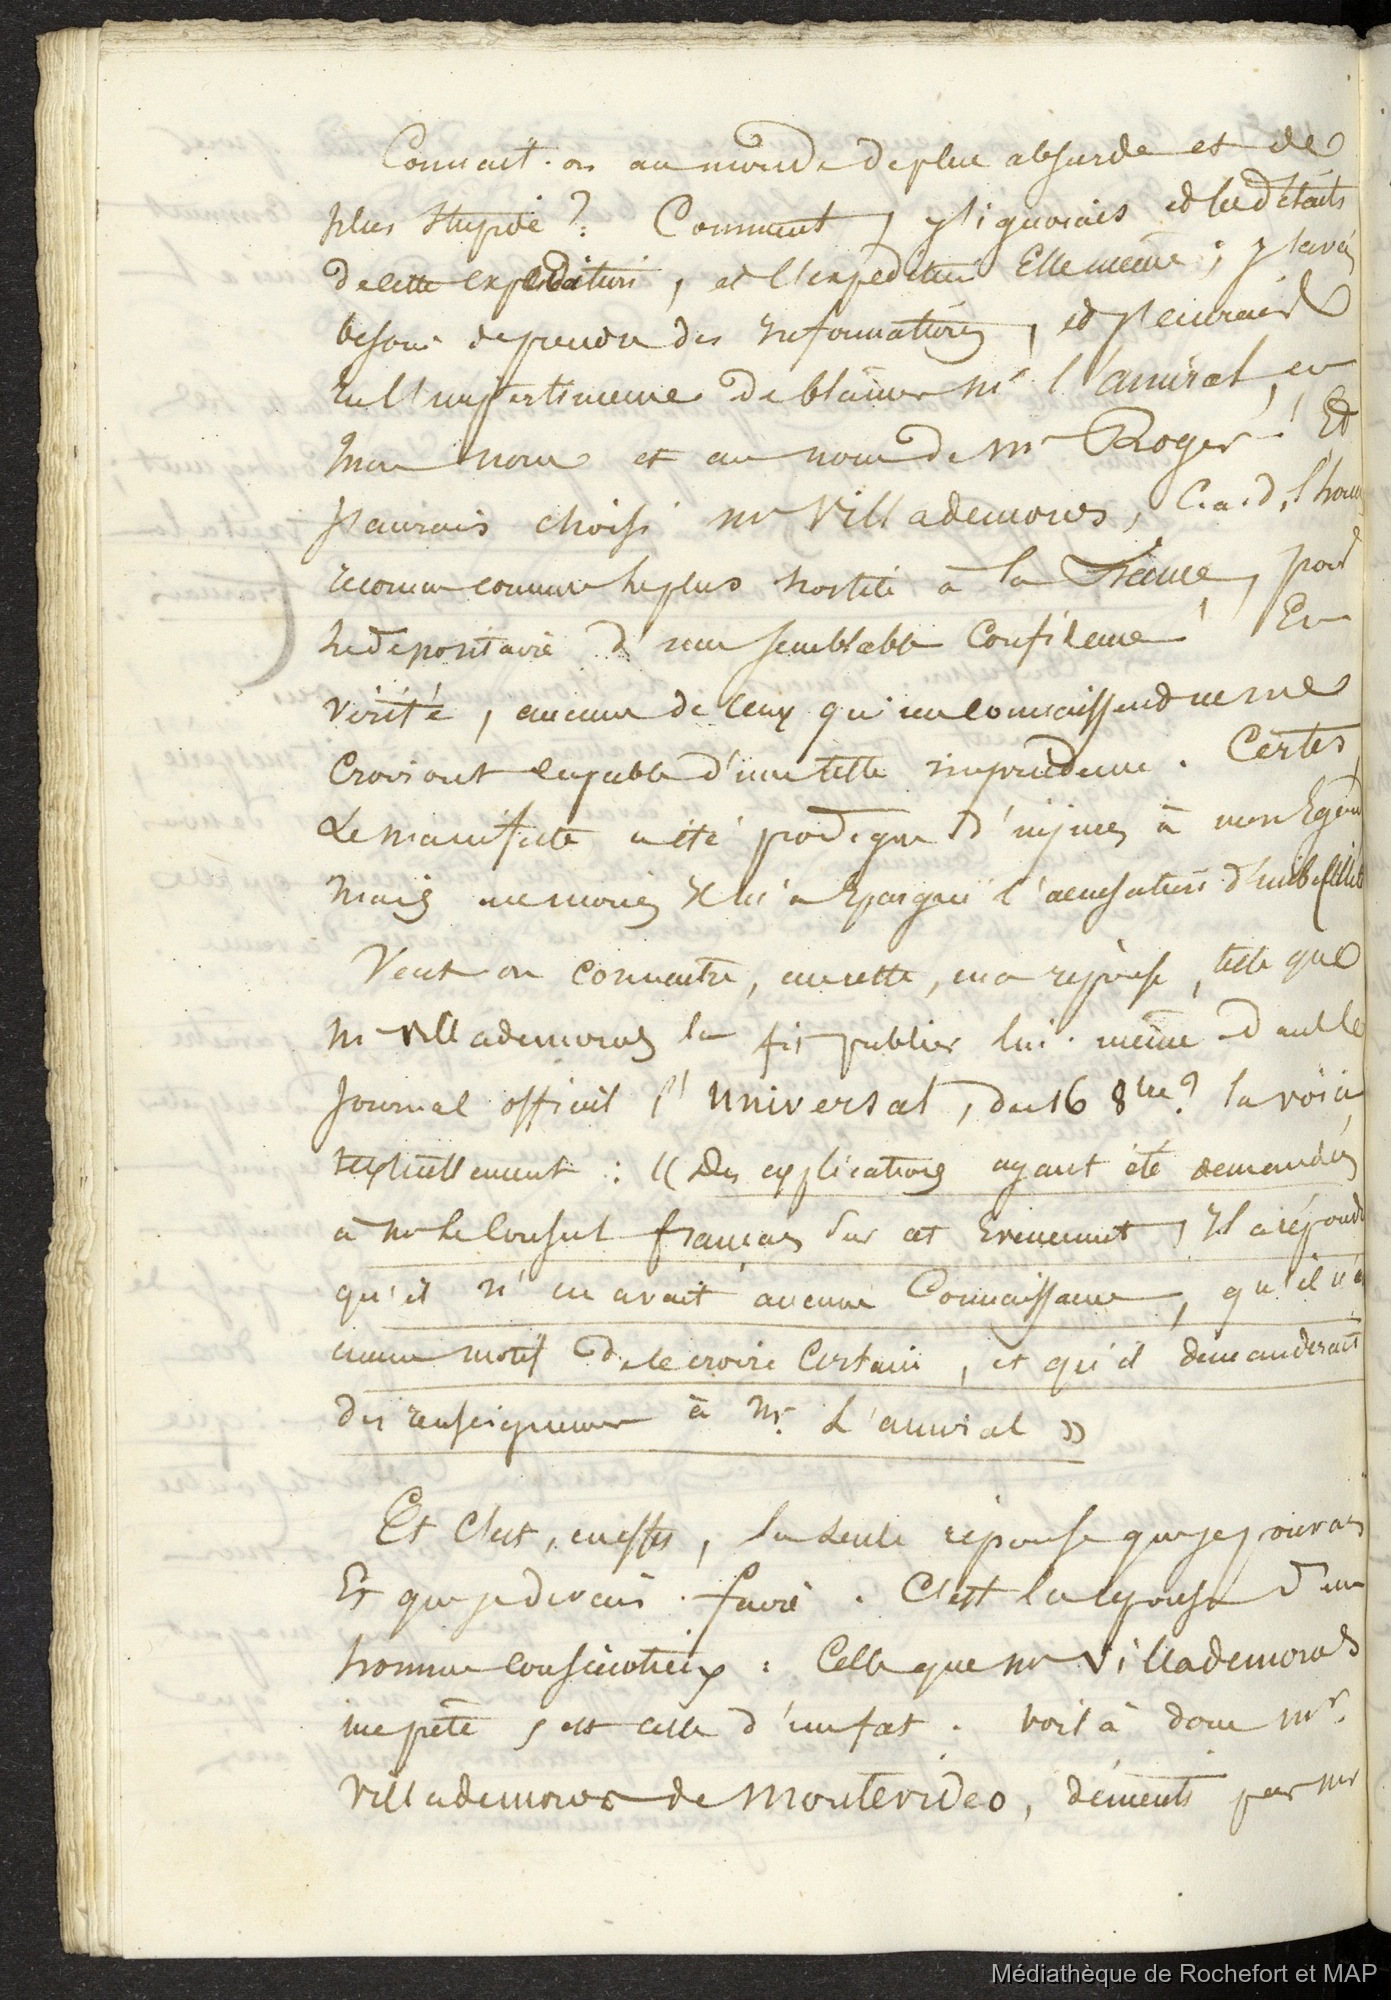 Connait-on au monde de plus absurde et de
plus stupide ? Comment, j'ignorais et les détails
de cette expédition, et l'expédition Elle même ; j'avais
besoin de prendre des informations, et j'aurais
eu l'impertinence de blâmer Mr l'amiral, en
mon nom et au nom de Mr Roger ! Et
j'aurais choisi Mr Villademoros, C.a.d. l'homme
reconnu comme le plus hostile à la France, pour
le dépositaire d'une semblable Confidence ! En
vérité, aucun de ceux qui me connaissent ne me
Croiront capable d'une telle imprudence. Certes,
Le manifeste a été prodigue d'injures à mon Egard
mais au moins il m'a Epargné l'accusation d'imbécillité
Veut on connaitre, au reste, ma réponse, telle que
Mr Villademoros la fit publier lui-même dans le
Journal officiel l'Universal, du 16 8bre ? la voici
textuellement : « Des explications ayant été demandées
à Mr le Consul français sur cet Evenement, Il a répondu
qu'il n'en avait aucune Connaissance, qu'il n'a
aucun motif de le croire Certain, et qu'il demanderait
des renseignemens à Mr. L'amiral »
Et C'est, en effet, la seule réponse que je pouvais
Et que je devais faire. C'est la réponse d'un
homme consciencieux : Celle que Mr Villademoros
me prête, est celle d'un fat. Voilà donc Mr.
Villademoros de Montevideo, démenti par Mr
Médiathèque de Rochefort et MAP